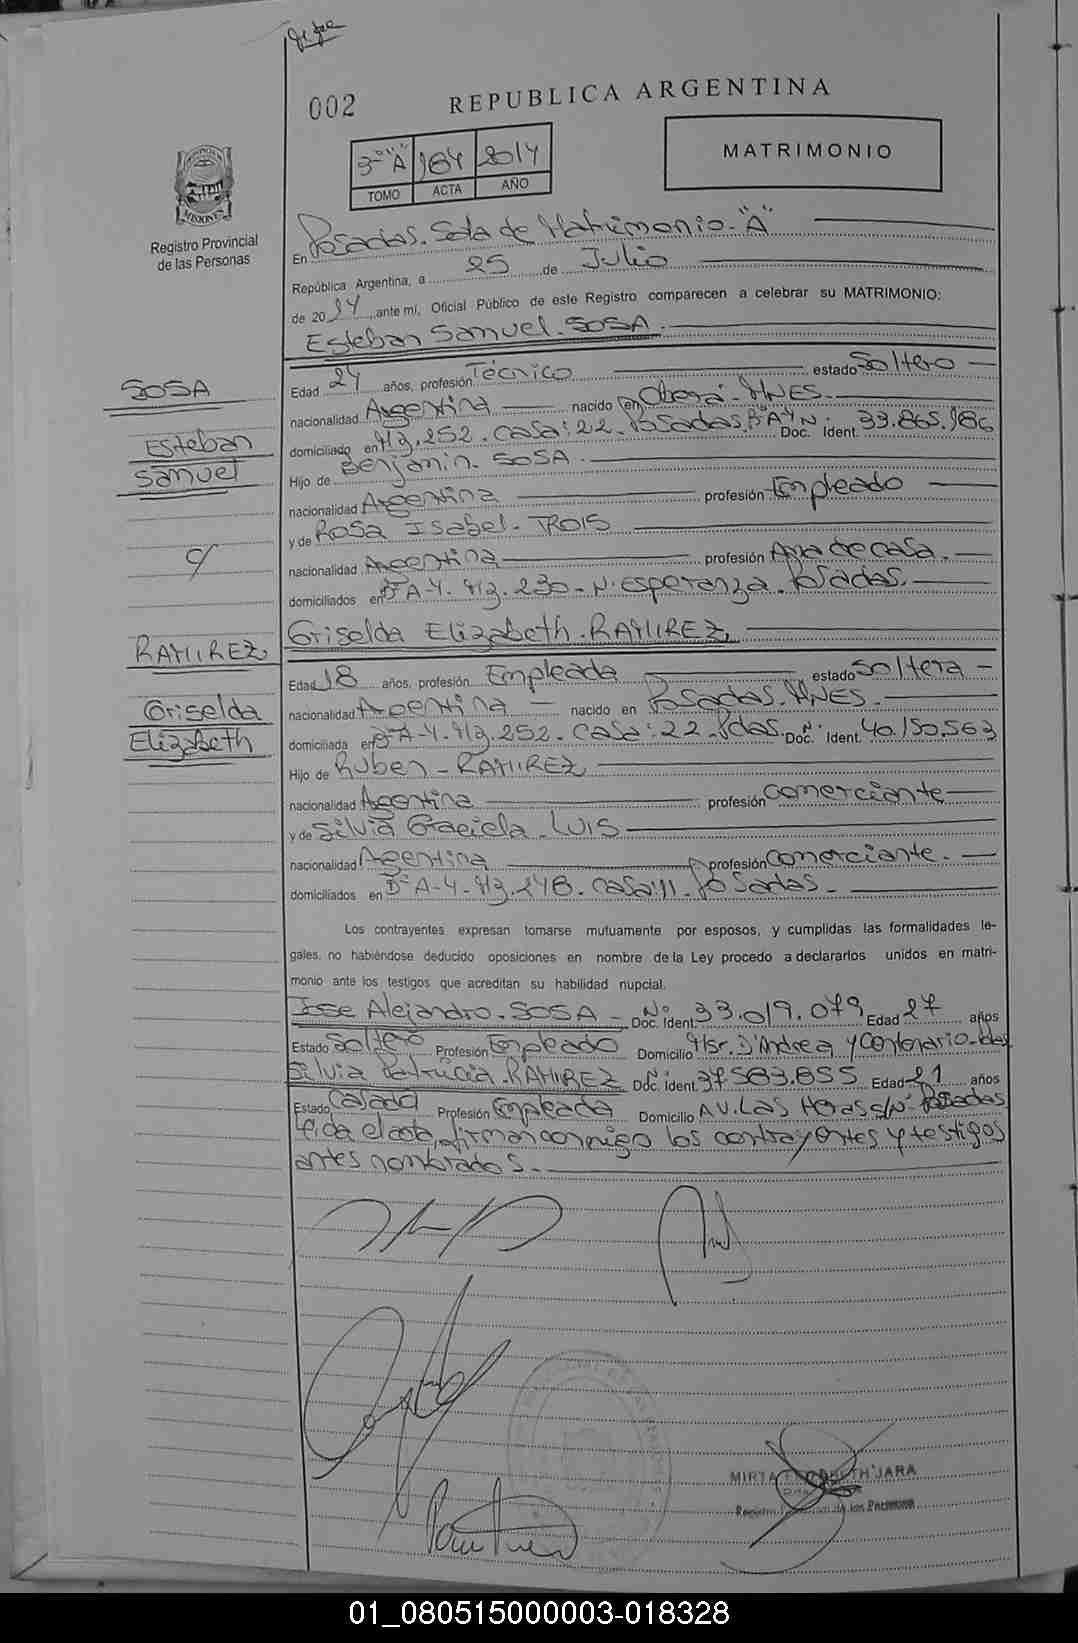 002
REPUBLICA ARGENTINA
MATRIMONIO
3-"A" 164 2014
TOMO ACTA AÑO
MISIONES
Registro Provincial
de las Personas
En Posadas. Sala de Matrimonio-"A"
República Argentina, a 25 de Julio
de 2014, ante mí, Oficial Público de este Registro comparecen a celebrar su MATRIMONIO:
Esteban Samuel-SOSA.
SOSA
Esteban
Samuel
c/
RAMIREZ
Griselda
Elizabeth
Edad 24 años, profesión Técnico estado Soltero
nacionalidad Argentina nacido en Oberá-MNES.
domiciliado en Mz.252.casa:22.Posadas.Bº A-4 Doc. Nº Ident. 33.865.186
Hijo de Benjamin-SOSA.
nacionalidad Argentina profesión Empleado
y de Rosa Isabel-TROIS
nacionalidad Argentina profesión Ama de casa.
domiciliados en Bº A-4. Mz.230-N.Esperanza.Posadas.
Griselda Elizabeth.RAMIREZ
Edad 18 años, profesión Empleada estado Soltera
nacionalidad Argentina nacido en Posadas.MNES.
domiciliada en Bº A-4.Mz.252.casa:22.Pdas. Doc. Nº Ident. 40.150.563
Hijo de Ruben-RAMIREZ
nacionalidad Argentina profesión Comerciante
y de Silvia Graciela.LUIS
nacionalidad Argentina profesión Comerciante.
domiciliados en Bº A-4-Mz.248.casa:11.Posadas-
Los contrayentes expresan tomarse mutuamente por esposos, y cumplidas las formalidades le-
gales, no habiéndose deducido oposiciones en nombre de la Ley procedo a declararlos unidos en matri-
monio ante los testigos que acreditan su habilidad nupcial.
Jose Alejandro.SOSA-Doc. Nº Ident. 33.019.079 Edad 27 años
Estado Soltero Profesión Empleado Domicilio Msr. D'Andrea y Centenario-Pdas
Silvia Patricia.RAMIREZ Doc. Nº Ident. 37583.855 Edad 21 años
Estado Casada Profesión Empleada Domicilio AV.Las Heras s/Nº Posadas
Leida el acta, firman conmigo los contrayentes y testigos
antes nombrados.
MIRTA ELIZABETH JARA
01_080515000003-018328